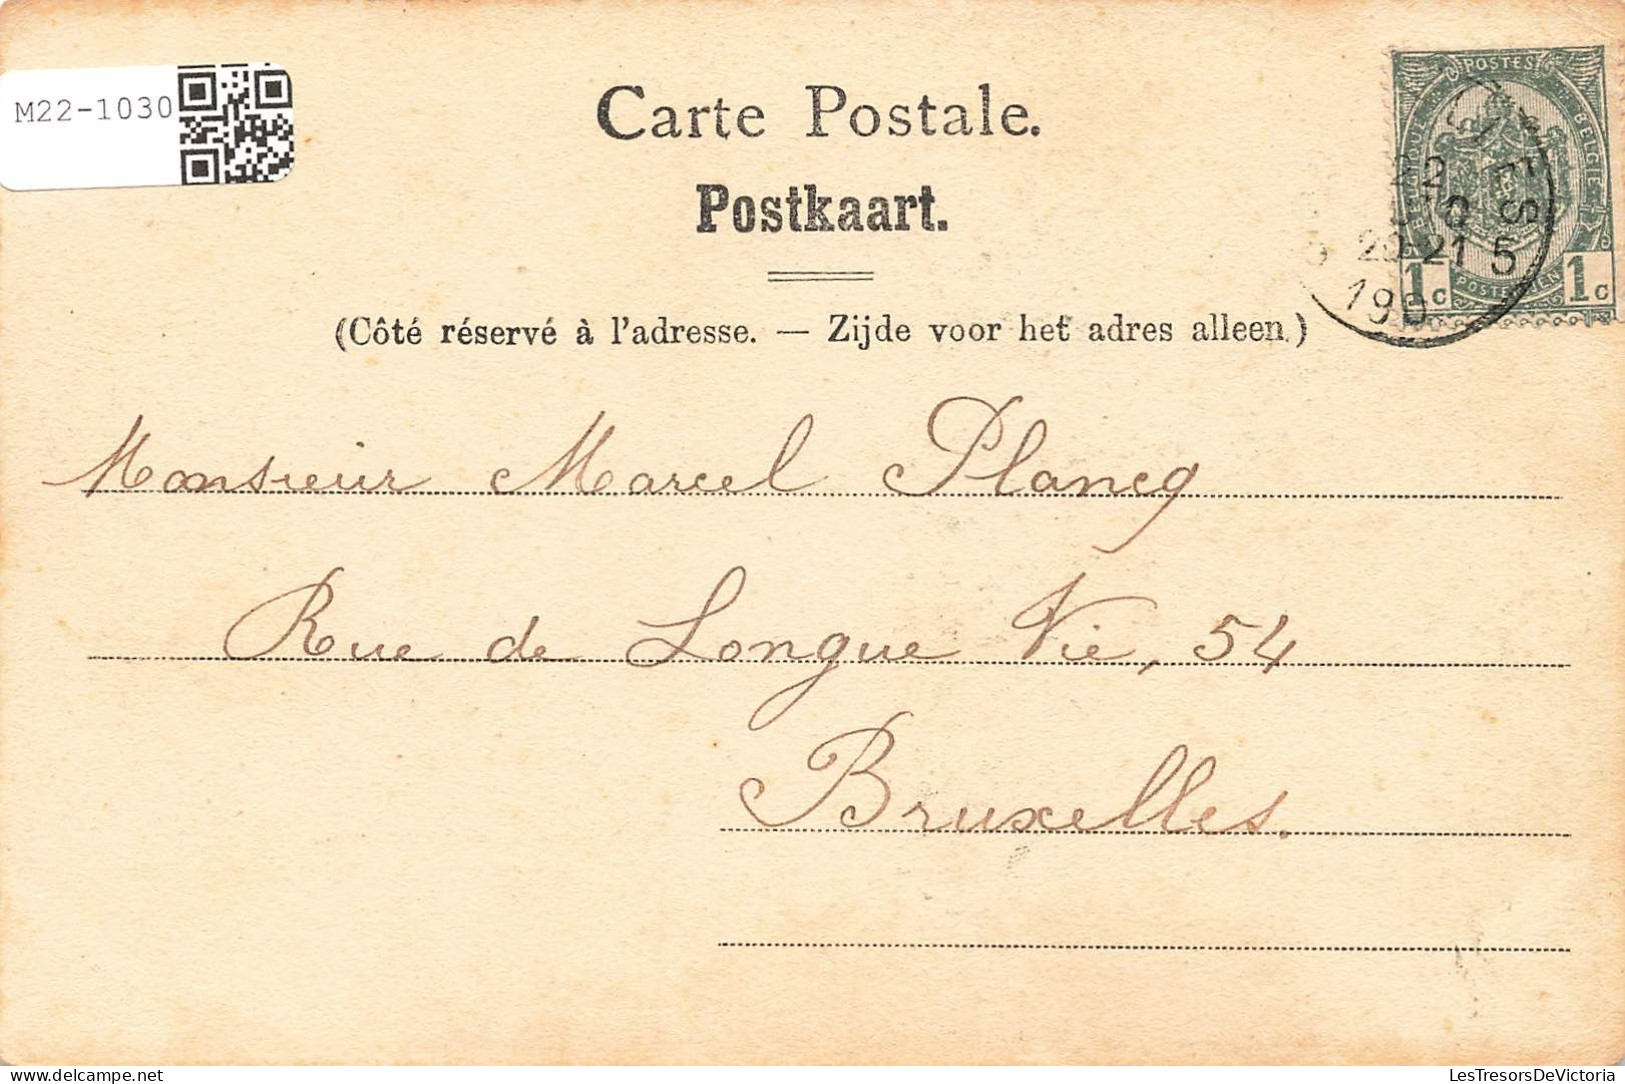 M22-1030
Carte Postale.
Postkaart.
(Côté réservé à l'adresse. — Zijde voor het adres alleen.)
POSTES
BELGIQUE
BELGIË
POSTERIJEN
1c 1c
22
20-21
5
190
Monsieur Marcel Plancq
Rue de Longue Vie, 54
Bruxelles.
LesTresorsDeVictoria
LesTresorsDeVictoria